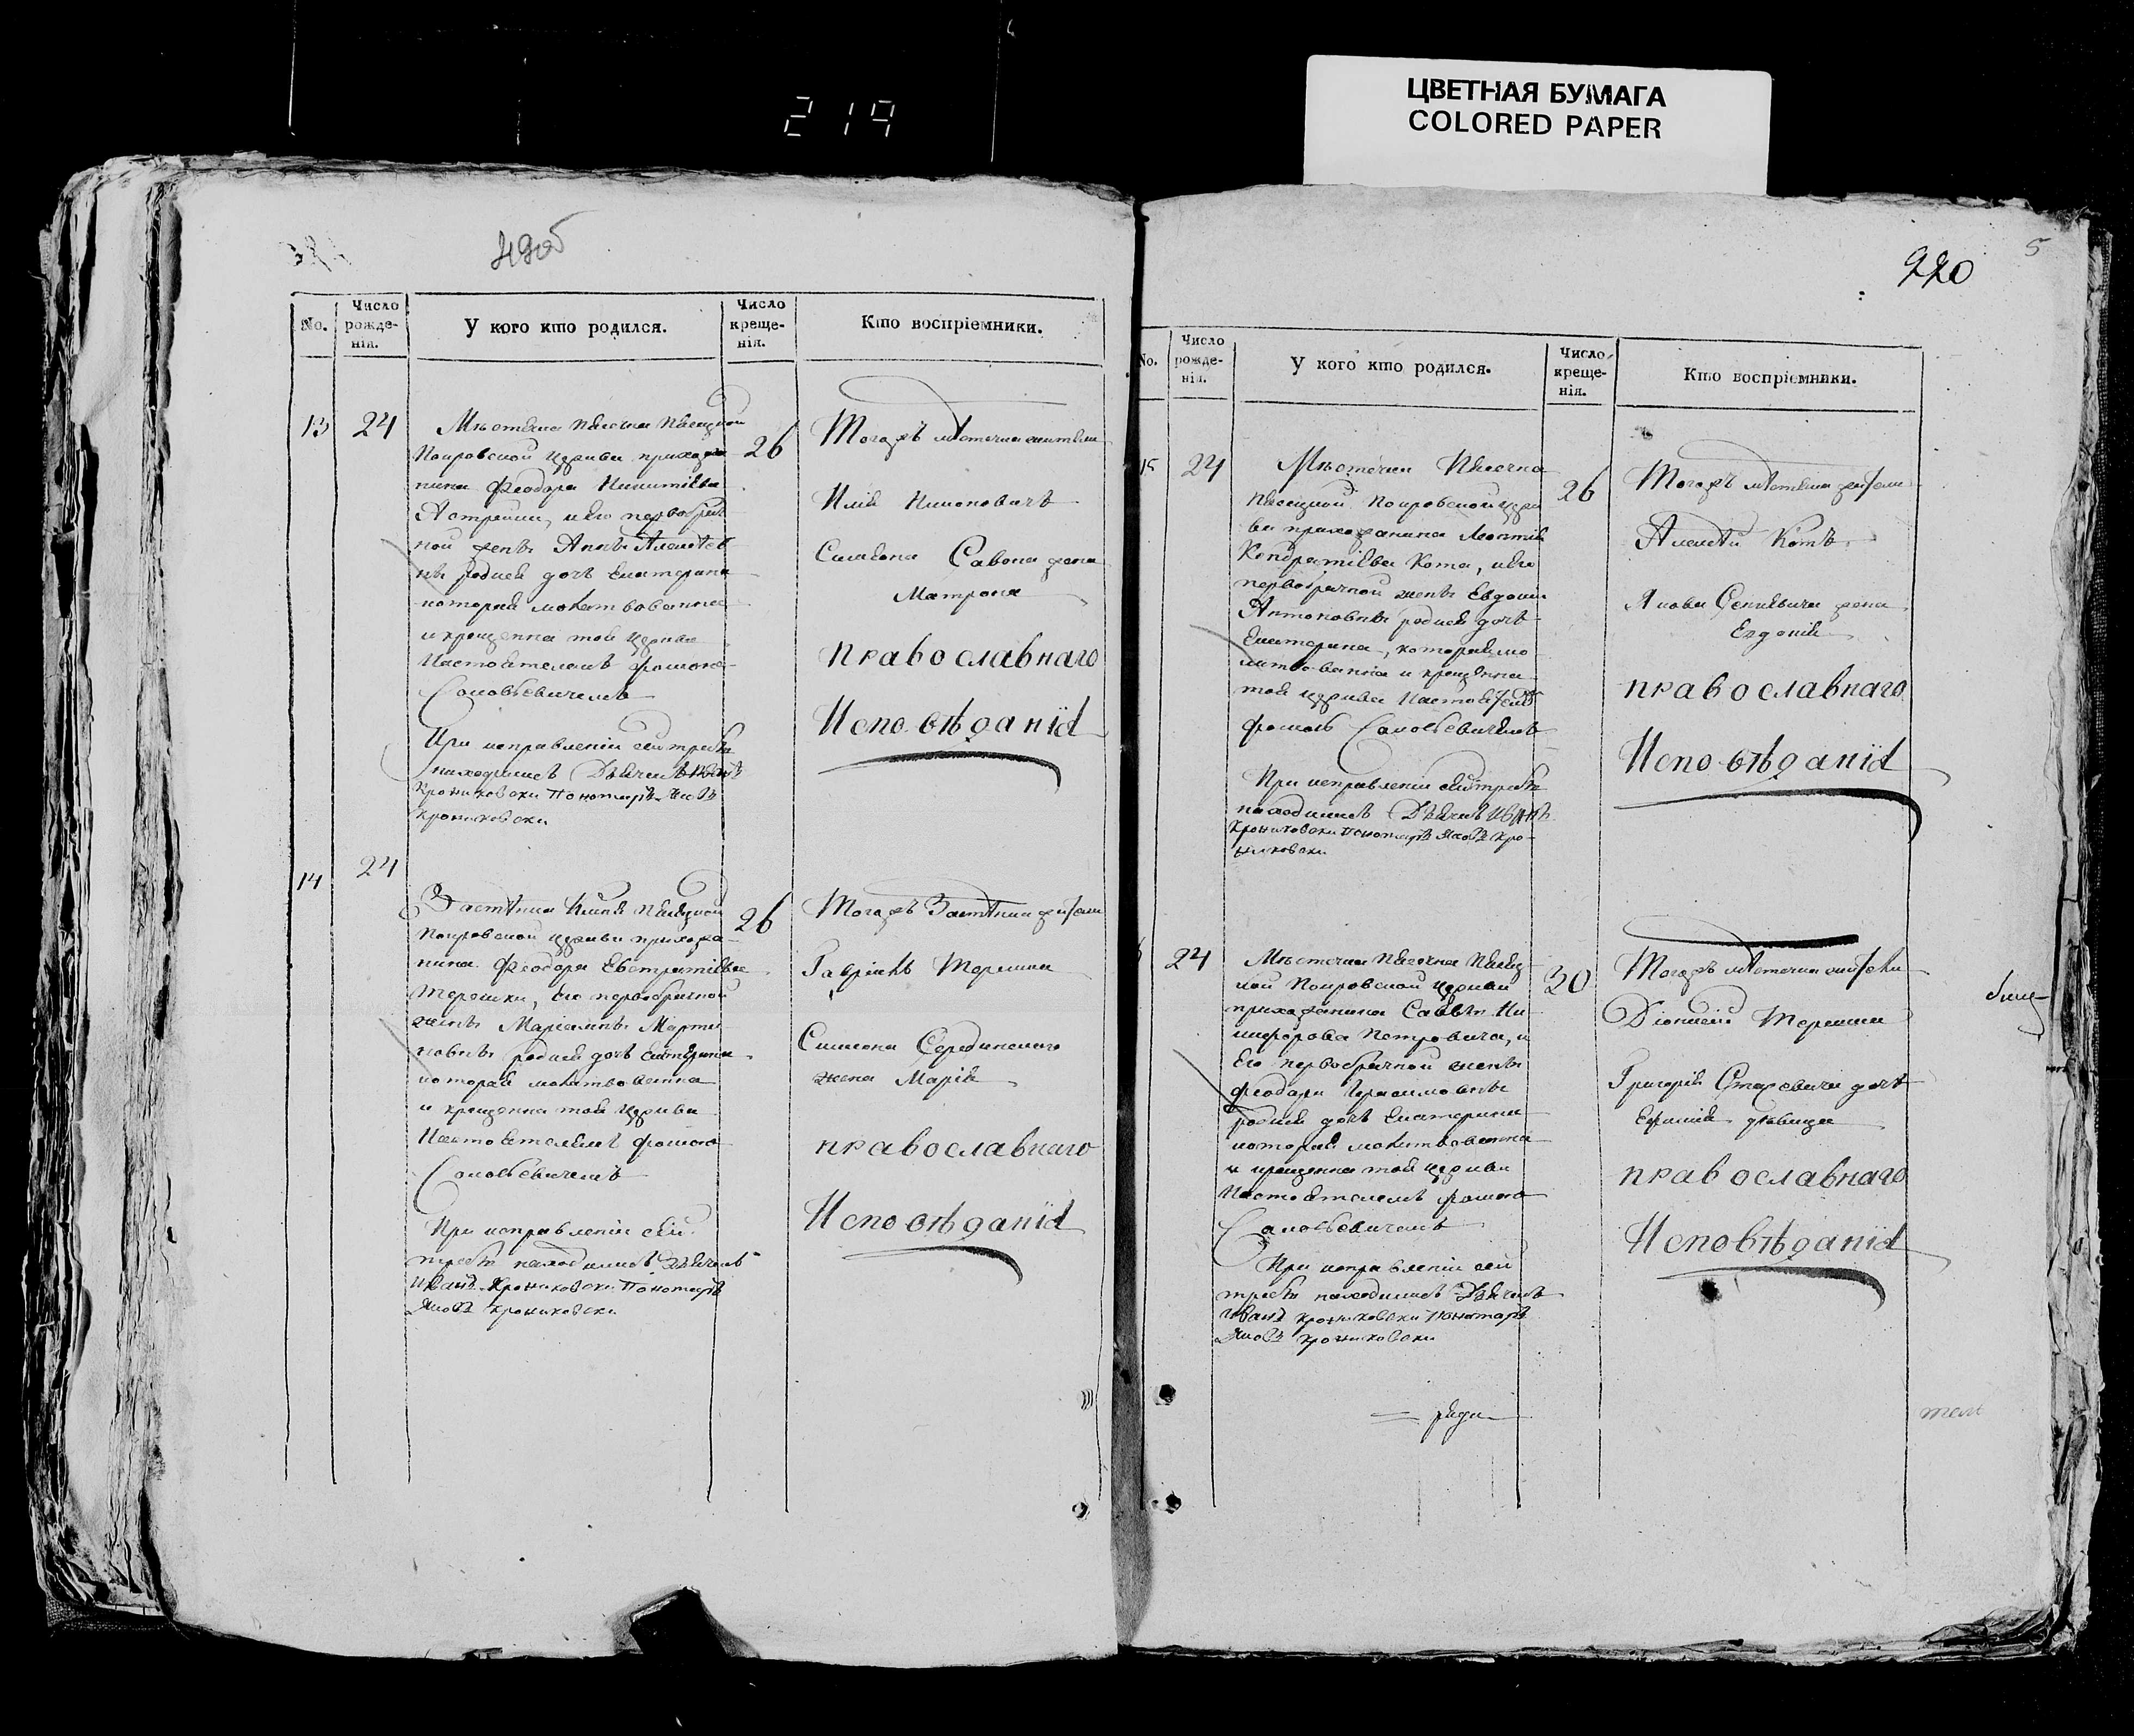 219
ЦВЕТНАЯ БУМАГА
COLORED PAPER
490б
No.
Число рожде-нія.
У кого кто родился.
Число креще-нія.
Кто воспріемники.
13
24
Мѣстечка
Покровской Церкви прихожа
нина Феодора Никитіева
и его первобрач
ной жены Анны
родися дочь Екатерина
которая молитвованна
и крещенна той Церкви
Настоятелемъ Фомою
Самовѣевичемъ
При исправленіи сей требы
находился Дьячекъ Иванъ
Крониковски Пономарь Яковъ
Крониковски
26
Тогожъ мѣстечка жители
Илія
Симеона Савона жена
Матрона
православнаго
Исповѣданія
14
24
Застѣнка
Покровской Церкви прихожа
нина Феодора Евстратіева
Терешки, Его первобрачной
жены Маріанны Марти
новны родися дочь Екатерина
которая молитвованна
и крещенна той Церкви
Настоятелемъ Фомою
Самовѣевичемъ
При исправленіи сей
требы находился Дьячекъ
Иванъ Крониковски Пономарь
Яковъ Крониковски
26
Тогожъ Застѣнка жители
Гавріилъ Терешка
Симеона Серединскаго
жена Марія
православнаго
Исповѣданія
220
5
No.
Число рожде-нія.
У кого кто родился.
Число креще-нія.
Кто воспріемники.
15
24
Мѣстечка
Покровской Церк
ви прихожанина Леонтія
Кондратіева Кота, и его
первобрачной жены Евдокіи
Антоновны родися дочь
Екатерина, которая мо
литвованна и крещенна
той Церкви Настоятелемъ
Фомою Самовѣевичемъ
При исправленіи сей требы
находился Дьячекъ Иванъ
Крониковски Пономарь Яковъ Кро-
никовски
26
Тогожъ мѣстечка жители
Алексѣй Котъ
Якова жена
Евдокія
православнаго
Исповѣданія
24
Мѣстечка
ной Покровской Церкви
прихожанина Саввы Ни
кифорова Петровича, и
Его первобрачной жены
Феодоры Герасимовны
родися дочь Екатерина
которая молитвованна
и крещенна той Церкви
Настоятелемъ Фомою
Самовѣевичемъ
При исправленіи сей
требы находился Дьячекъ
Иванъ Крониковски Пономарь
Яковъ Крониковски
30
Тогожъ мѣстечка жители
Діонисій Терешка
Григорія дочь
дѣвица
православнаго
Исповѣданія